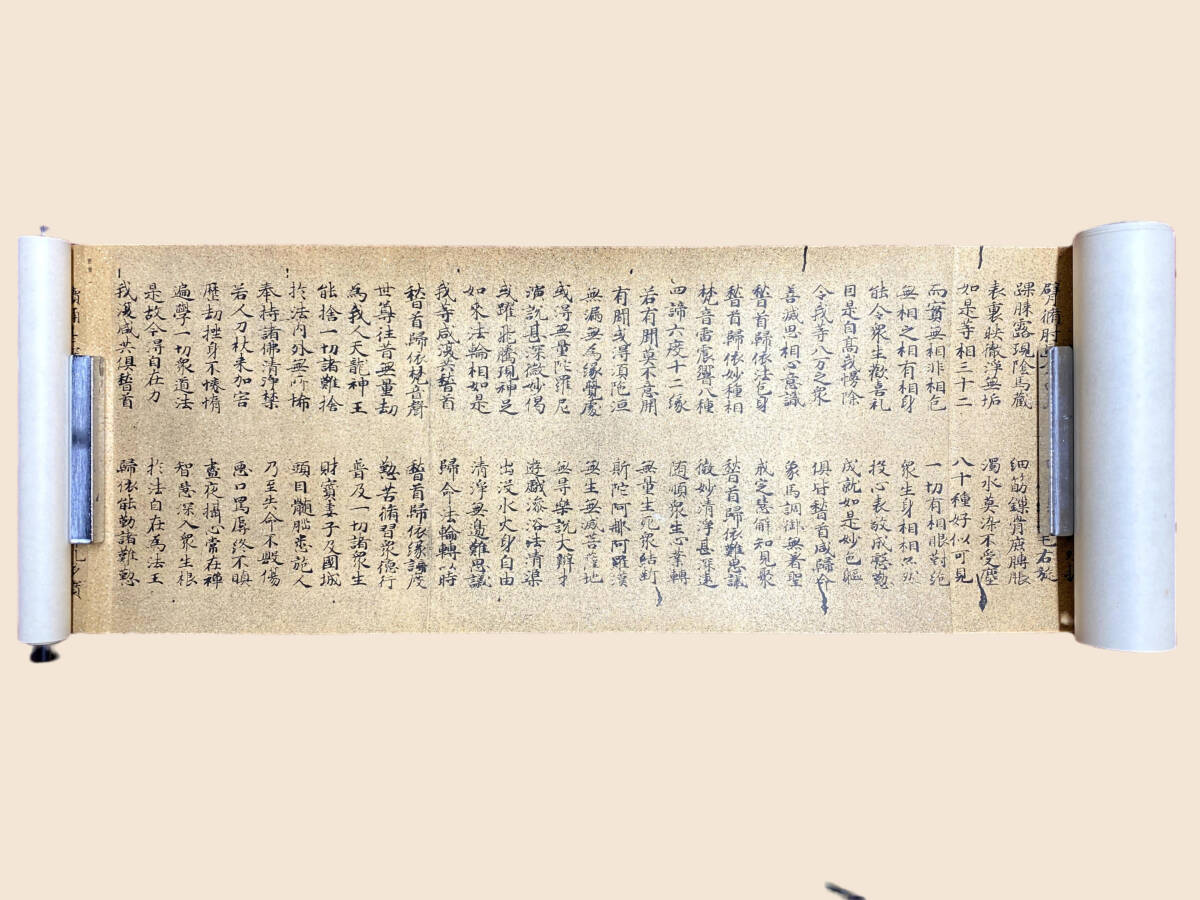 臂脩肘 毛右旋
踝膝露現陰馬藏 細筋鏁骨鹿膊脹
表裏映徹淨無垢 濁水莫染不受塵
如是等相三十二 八十種好似可見
而實無相非相色 一切有相眼對絶
無相之相有相身 衆生身相相亦然
能令衆生歡喜礼 投心表敬成慇懃
因是自高我慢除 成就如是妙色軀
今我等八万之衆 俱皆稽首咸歸命
善滅思相心意識 象馬調御無著聖
稽首歸依法色身 戒定慧解知見聚
稽首歸依妙種相 稽首歸依難思議
梵音雷震響八種 微妙清淨甚深遠
四諦六度十二緣 随順衆生心業轉
若有聞莫不意開 無量生死衆結断
有聞或得湏陁洹 斯陁阿那阿羅漢
無漏無為緣覺處 無生無滅菩薩地
或得無量陁羅尼 無㝵樂説大辯才
演説甚深微妙偈 遊戲澡浴法清渠
或躍飛騰現神足 出沒水火身自由
如來法輪相如是 清淨無邊難思議
我等咸復共稽首 歸命法輪轉以時
稽首歸依梵音聲 稽首歸依緣諦度
世尊往昔無量劫 懃苦脩習衆德行
為我人天龍神王 普及一切諸衆生
能捨一切諸難捨 財寶妻子及國城
於法内外無所悋 頭目髓腦悉施人
奉持諸佛清淨禁 乃至失命不毀傷
若人刀杖来加害 惡口罵辱終不瞋
歷劫挫身不惓惰 晝夜攝心常在禪
遍學一切衆道法 智慧深入衆生根
是故今得自在力 於法自在為法王
我復咸共俱稽首 歸依能勤諸難懃